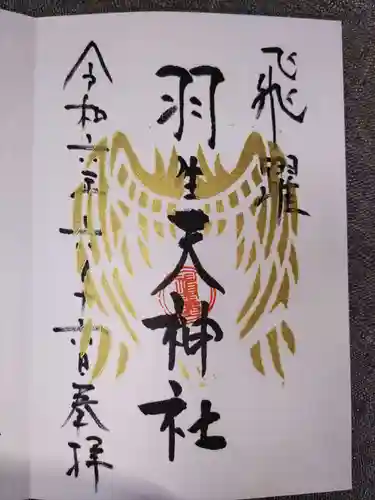 飛躍
羽生天神社
令和六年六月十六日奉拝